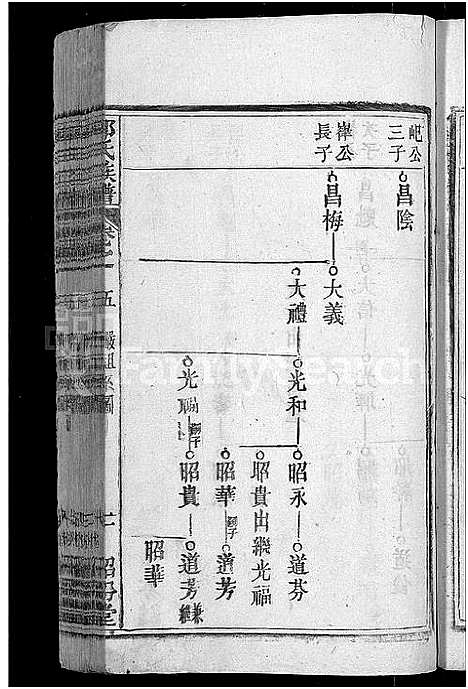 屺公
三子
昌陰
崋公
長子
昌梅
大義
大禮
光和
昭永
道芬
昭貴出繼光福
昭華
嗣子
道芳
光福
嗣子
昭貴
道芳
兼祧
昭華
氏族譜
卷
五
系圖
七
堂
FamilySearch